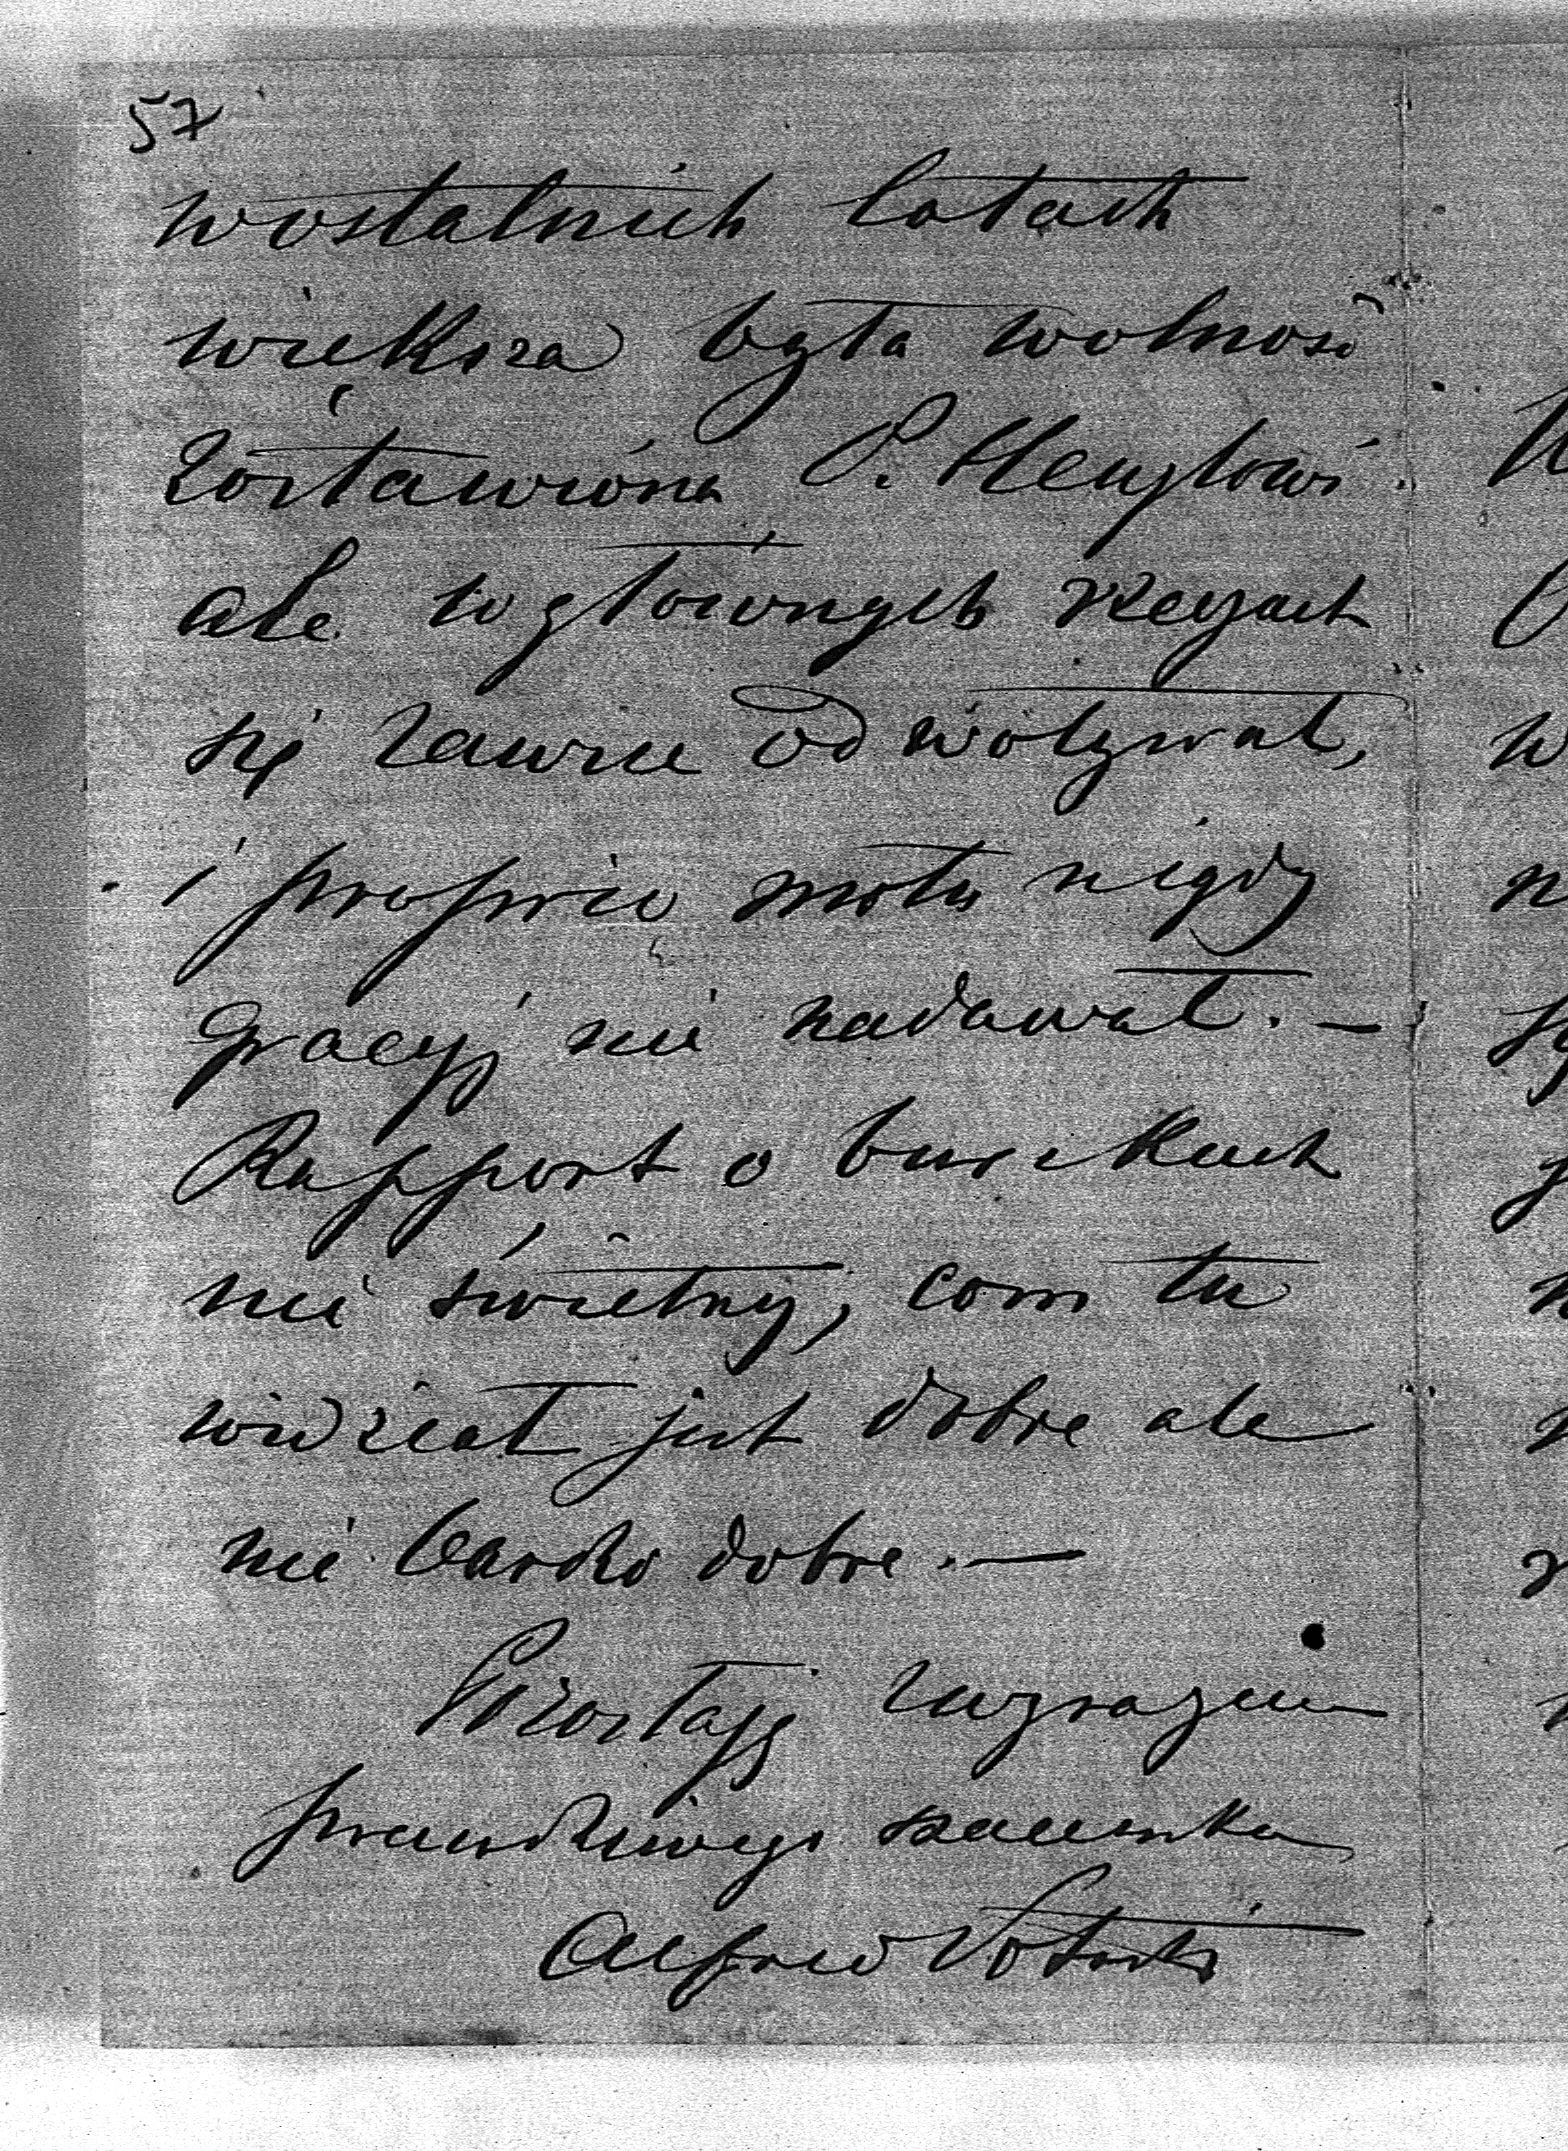 57
w ostatnich latach
większa była wolność
zostawiona P. Heuzłowi
ale w głównych rzeczach
się zawsze odwoływał,
i proprio motu nigdy
gracyj nie nadawał. —
Rapport o burakach
nie świetny, com tu
widział jest dobre ale
nie bardzo dobre. —
Pozostaję z wyrazem
prawdziwego szacunku
Alfred Potocki